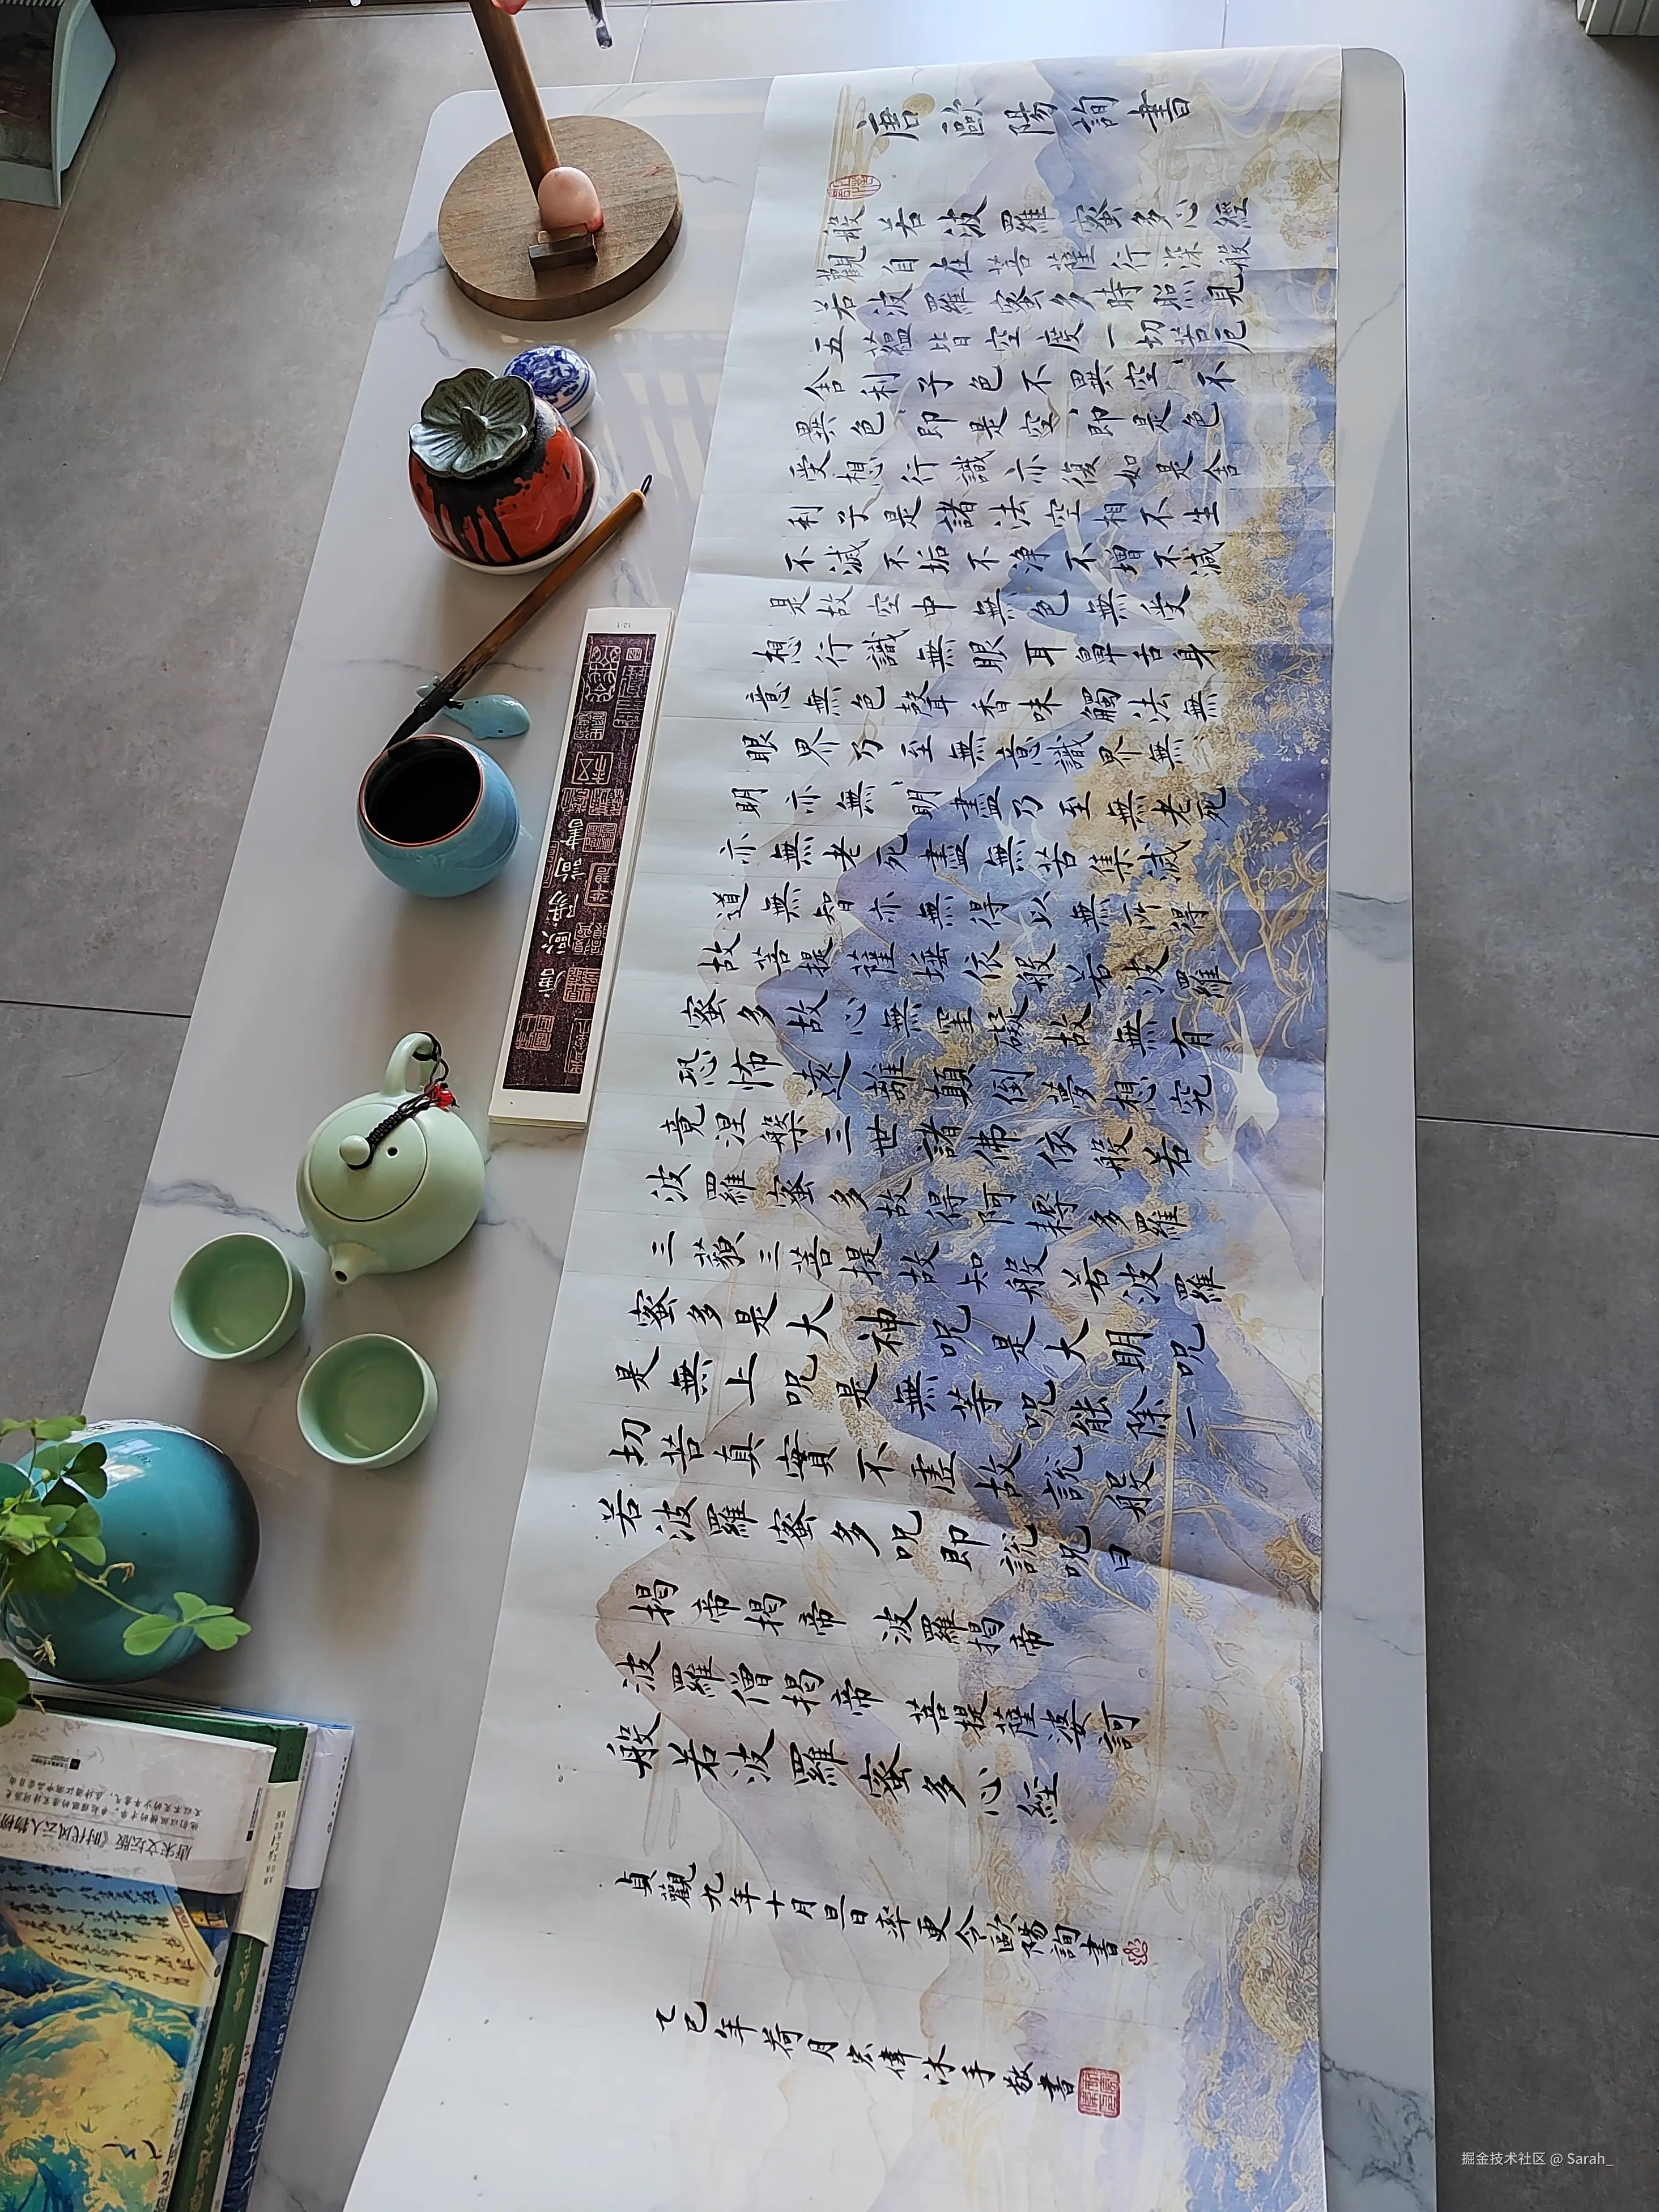 唐歐陽詢書
般若波羅蜜多心經
觀自在菩薩行深般
若波羅蜜多時照見
五蘊皆空度一切苦厄
舍利子色不異空〻不
異色〻即是空〻即是色
受想行識亦復如是舍
利子是諸法空相不生
不滅不垢不淨不增不減
是故空中無色無受
想行識無眼耳鼻舌身
意無色聲香味觸法無
眼界乃至無意識界無〻
明亦無〻明盡乃至無老死
亦無老死盡無苦集滅
道無智亦無得以無所得
故菩提薩埵依般若波羅
蜜多故心無罣礙故無有
恐怖遠離顛倒夢想究
竟涅槃三世諸佛依般若
波羅蜜多故得阿耨多羅
三藐三菩提故知般若波羅
蜜多是大神呪是大明呪
是無上呪是無等呪能除一
切苦真實不虛故說般
若波羅蜜多呪即說呪曰
揭帝揭帝 波羅揭帝
波羅僧揭帝 菩提薩婆訶
般若波羅蜜多心經
貞觀九年十月旦日率更令歐陽詢書
乙巳年荷月宏偉沐手敬書
唐歐陽詢書
唐宋文坛版《时代风云人物榜
掘金技术社区 @ Sarah_